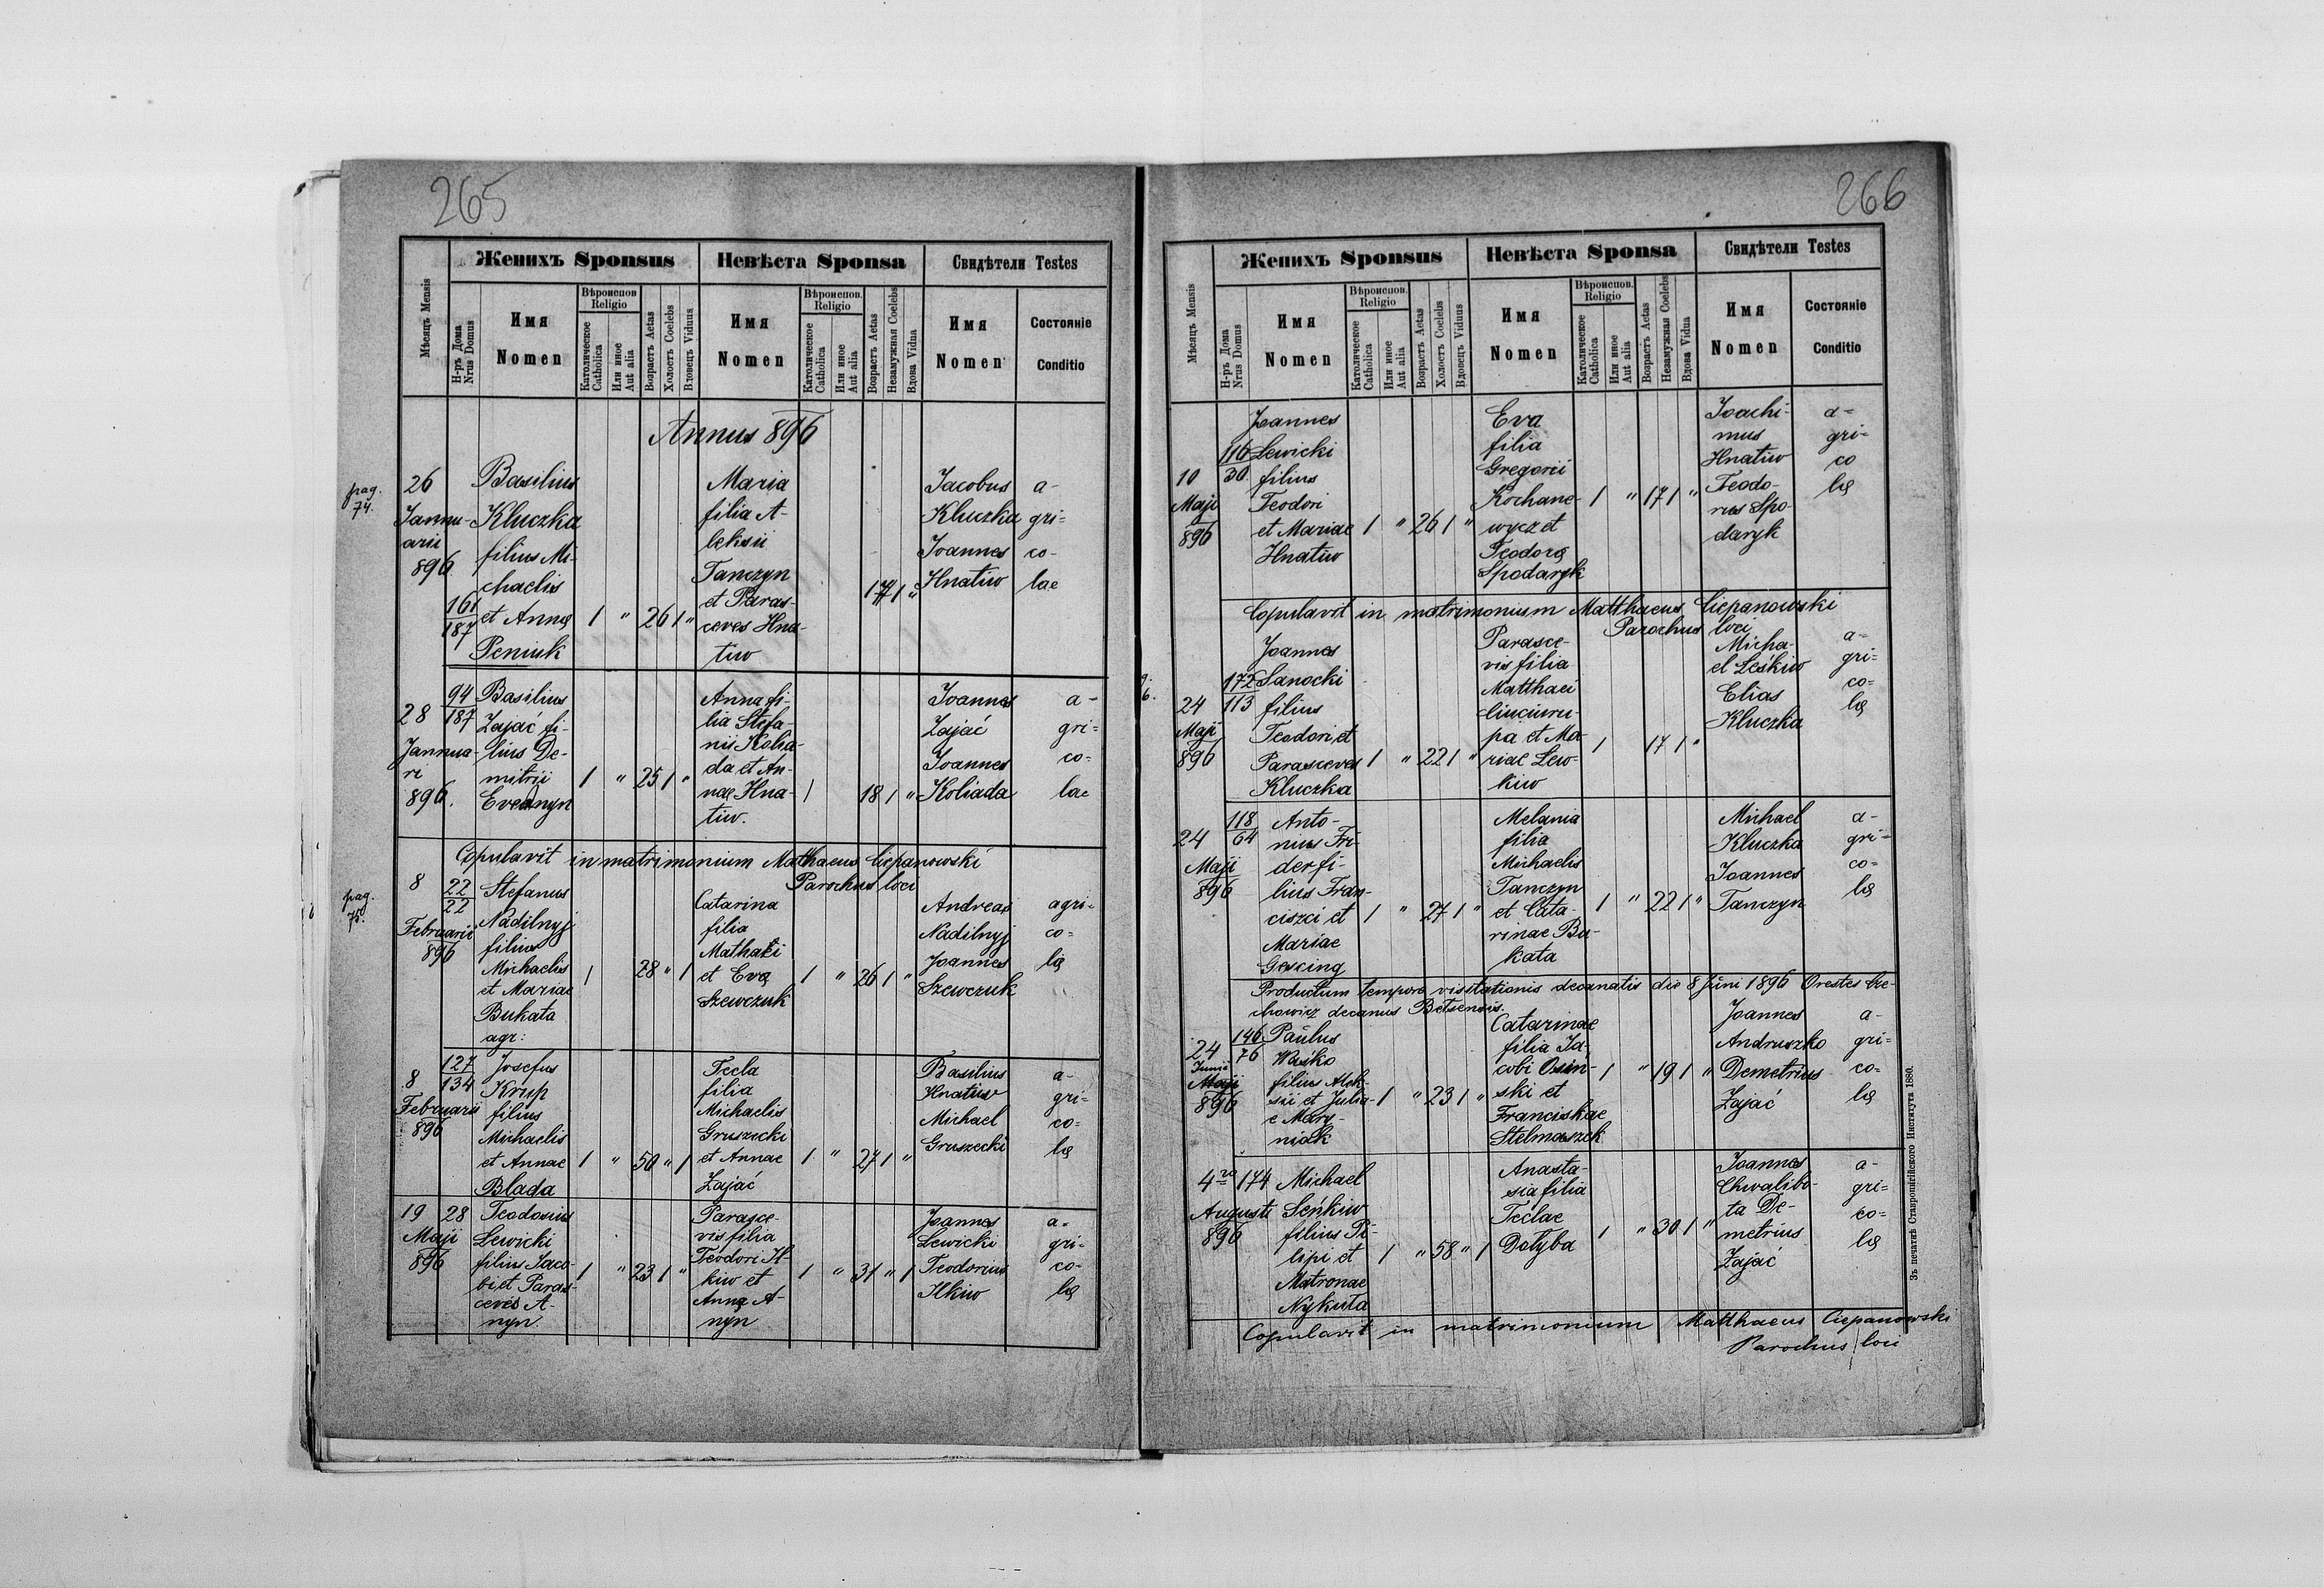 265
Женихъ Sponsus
Невѣста Sponsa
Свидѣтели Testes
Мѣсяцъ Mensis
Н-ръ Дома
Nrus Domus
Имя
Nomen
Вѣроиспов
Religio
Католическое
Catholica
Или иное
Aut alia
Возрастъ Aetas
Холостъ Coelebs
Вдовецъ Viduus
Имя
Nomen
Вѣроиспов.
Religio
Католическое
Catholica
Или иное
Aut alia
Возрастъ Aetas
Незамужная Coelebs
Вдова Vidua
Имя
Nomen
Состояніе
Conditio
Annus 896
pag.
74.
26
Jannu-
arii
896
161
187
Basilius
Kluczka
filius Mi-
chaelis
et Annę
Peniuk
1 " 26 1 "
Maria
filia A-
leksii
Tanczyn
et Paras-
ceves Hna-
tiw
17 1 "
Jacobus
Kluczka
Joannes
Hnatiw
a-
gri-
co-
lae
28
Jannua-
ri
896.
94
187
Basilius
Zająć fi-
lius De-
mitrii
Evednyn
1 " 25 1 "
Anna fi-
lia Stefa-
nii Kolia-
da et An-
nae Hna-
tiw.
1 18 1 "
Joannes
Zajać
Joannes
Koliada
a-
gri-
co-
lae
Copulavit in matrimonium Mathaeus Ciepanowski
Parochus loci
pag.
75.
8
Februarii
896
22
22
Stefanus
Nadilnyj
filius
Michaelis
et Mariae
Bukata
agr:
1 28 " 1
Catarina
filia
Mathaei
et Evę
Szewczuk
1 " 26 1 "
Andreas
Nadilnyj
Joannes
Szewczuk
agri-
co-
lę
8
Februarii
896
127
134
Josefus
Krup
filius
Michaelis
et Annae
Blada
1 " 50 " 1
Tecla
filia
Michaelis
Gruszecki
et Annae
Zajać
1 " 27 1 "
Basilius
Hnatiw
Michael
Gruszecki
a-
gri-
co-
lę
19
Maji
896
28
Teodosius
Lewicki
filius Jaco-
bi et Paras-
ceves A-
nyn.
1 " 23 1 "
Parasce-
vis filia
Teodori Il-
kiw et
Annę A-
nyn
1 " 31 " 1
Joannes
Lewicki
Teodorius
Ilkiw
a-
gri-
co-
lę
266
Женихъ Sponsus
Невѣста Sponsa
Свидѣтели Testes
Мѣсяцъ Mensis
Н-ръ Дома
Nrus Domus
Имя
Nomen
Вѣроиспов.
Religio
Католическое
Catholica
Или иное
Aut alia
Возрастъ Aetas
Холостъ Coelebs
Вдовецъ Viduus
Имя
Nomen
Вѣроиспов.
Religio
Католическое
Catholica
Или иное
Aut alia
Возрастъ Aetas
Незамужная Coelebs
Вдова Vidua
Имя
Nomen
Состояніе
Conditio
10
Maji
896
116
30.
Joannes
Lewicki
filius
Teodori
et Mariae
Hnatiw
1 " 26 1 "
Eva
filia
Gregorii
Kochane-
wycz et
Teodorę
Spodaryk
1 " 17 1 "
Joachi-
mus
Hnatiw
Teodo-
rus Spo-
daryk
a-
gri-
co
lę
Copulavit in matrimonium Matthaeus Ciepanowski
Parochus loci
24
Maji
896
172
113
Joannes
Sanocki
filius
Teodori et
Parasceves
Kluczka
1 " 22 1 "
Parasce-
vis filia
Matthaei
Ciuciuru-
pa et Ma-
riae Lew-
kiw
1 17 1 "
Micha-
el Leśkiw
Elias
Kluczka
a-
gri-
co-
lę
24
Maji
896
118
64
Anto-
nius Fri-
der fi-
lius Fran-
ciszci et
Mariae
Gescing
1 " 27 1 "
Melania
filia
Michaelis
Tanczyn
et Cata-
rinae Bu-
kata
1 " 22 1 "
Michael
Kluczka
Joannes
Tanczyn
a-
gri-
co-
lę
Productum tempore visitationis decanatis die 8 Juni 1896 Orestes Cze-
chowicz decanus Betsensis.
24
Junii
Maji
896
146
76
Paulus
Waśko
filius Alek-
sii et Julia-
e Mary-
niak
1 " 23 1 "
Catarinae
filia Ja-
cobi Osin-
ski et
Franciskae
Stelmaszek
1 " 19 1 "
Joannes
Andruszko
Demetrius
Zajać
a-
gri-
co-
lę
4
Augusti
896
174
Michael
Seńkiw
filius Pi-
lipi et
Matronae
Nykuta
1 " 58 " 1
Anasta-
sia filia
Teclae
Dotyba
1 " 30 1 "
Joannes
Chwalibo-
ta De-
metrius
Zajać
a-
gri-
co-
lę
Copulavit in matrimonium Matthaeus Ciepanowski
Parochus loci
Зъ печатнѣ Ставропигійского Института 1880.